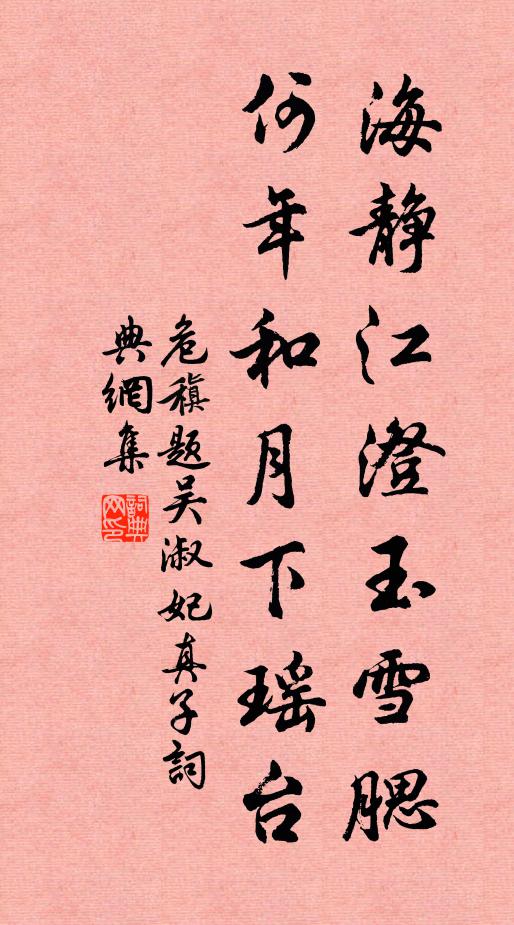 海静江澄玉雪腮
何年和月下瑶台
危稹题吴淑妃真子詞
典網集
詞典
网印